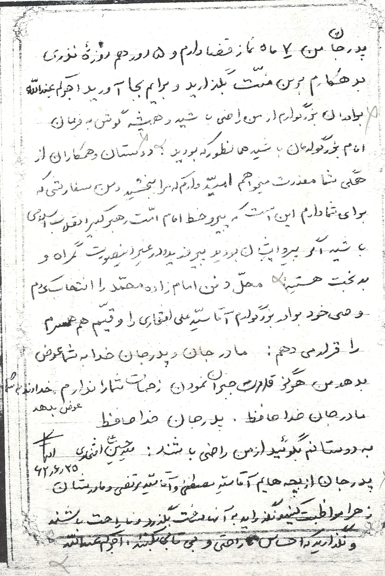 پدر جان من ۷ ماه نماز قضا دارم و ۱۵ روز هم روزهٔ نذری
بدهکارم بر من منّت بگذارید و برایم بجا آورید اجرکم عندالله
برادران بزرگوارم از من راضی باشید و همیشه گوش به فرمان
امام بزرگوارمان باشید همانطور که بودید دوستان و همکاران از
همگی شما معذرت میخواهم امید دارم که مرا ببخشید و من سفارشی که
برای شما دارم این است که پیرو خط امام امّت رهبر کبیر انقلاب اسلامی
باشید اگر پیرو ایشان بودید پیروزید در غیر اینصورت گمراه و
بدبخت هستید محل دفن امام زاده محمّد را انتخاب کردم
و وصی خود برادر بزرگوارم آقا سیّد علی افتخاری را و قیّم هم همسرم
را قرار می دهم : مادر جان و پدر جان خدا به شما عوض
بدهد من هرگز قدرت جبران نمودن زحمات شما را ندارم خداوند به شما
عوض بدهد
مادر جان خدا حافظ . پدر جان خدا حافظ
به دوستانم بگوئید از من راضی باشند :
۶۲٫۶٫۲۵
پدر جان از بچه هایم آقا سیّد مصطفی و آقا سیّد مرتضی و مادرشان
زهرا مواظبت کنید نگذارید به آنها سخت بگذرد و ناراحت باشند
و نگذارید که احساس ناراحتی و بی بابائی بکنند . اجرکم عندالله